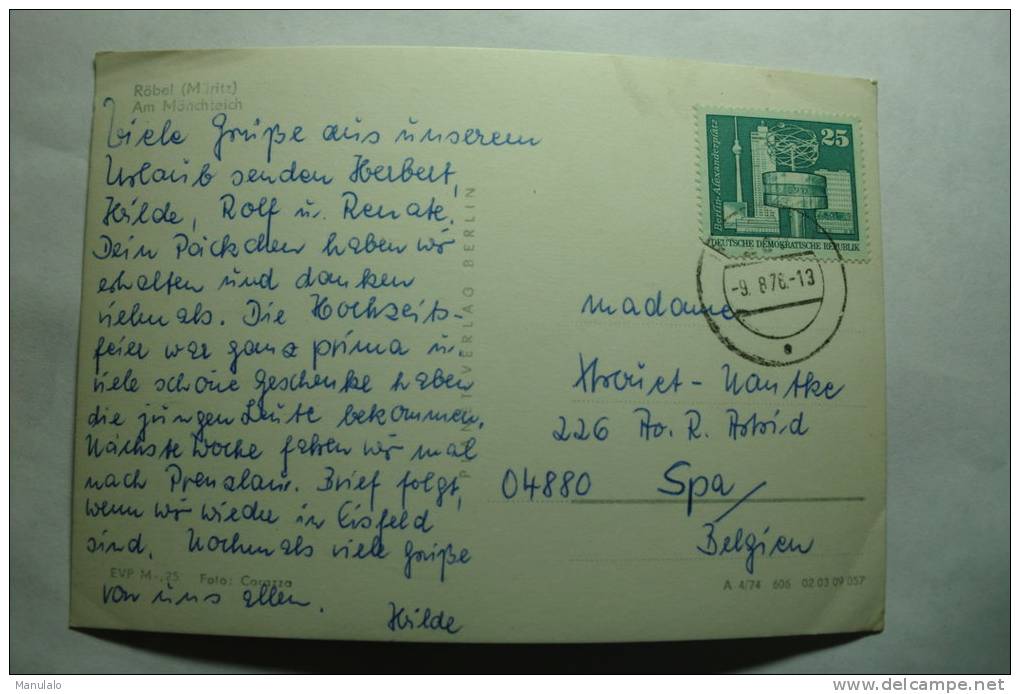 Röbel (Müritz)
Am Mönchteich
Viele Grüße aus unserem
Urlaub senden Herbert,
Hilde, Rolf u. Renate.
Dein Päckchen haben wir
erhalten und danken
vielmals. Die Hochzeits-
feier war ganz prima u.
viele schöne Geschenke haben
die jungen Leute bekommen.
Nächste Woche fahren wir mal
nach Prenzlau. Brief folgt,
wenn wir wieder in Eisfeld
sind. Nochmals viele Grüße
von uns allen.
Hilde
EVP M -,25 Foto: Corazza
PLANET-VERLAG BERLIN
Berlin-Alexanderplatz
25
DEUTSCHE DEMOKRATISCHE REPUBLIK
-9.8.76.-13
a
Madame
226 Av. R. Astrid
04880 Spa
Belgien
A 4/74 606 02 03 09 057
Manulalo
delcampe.net